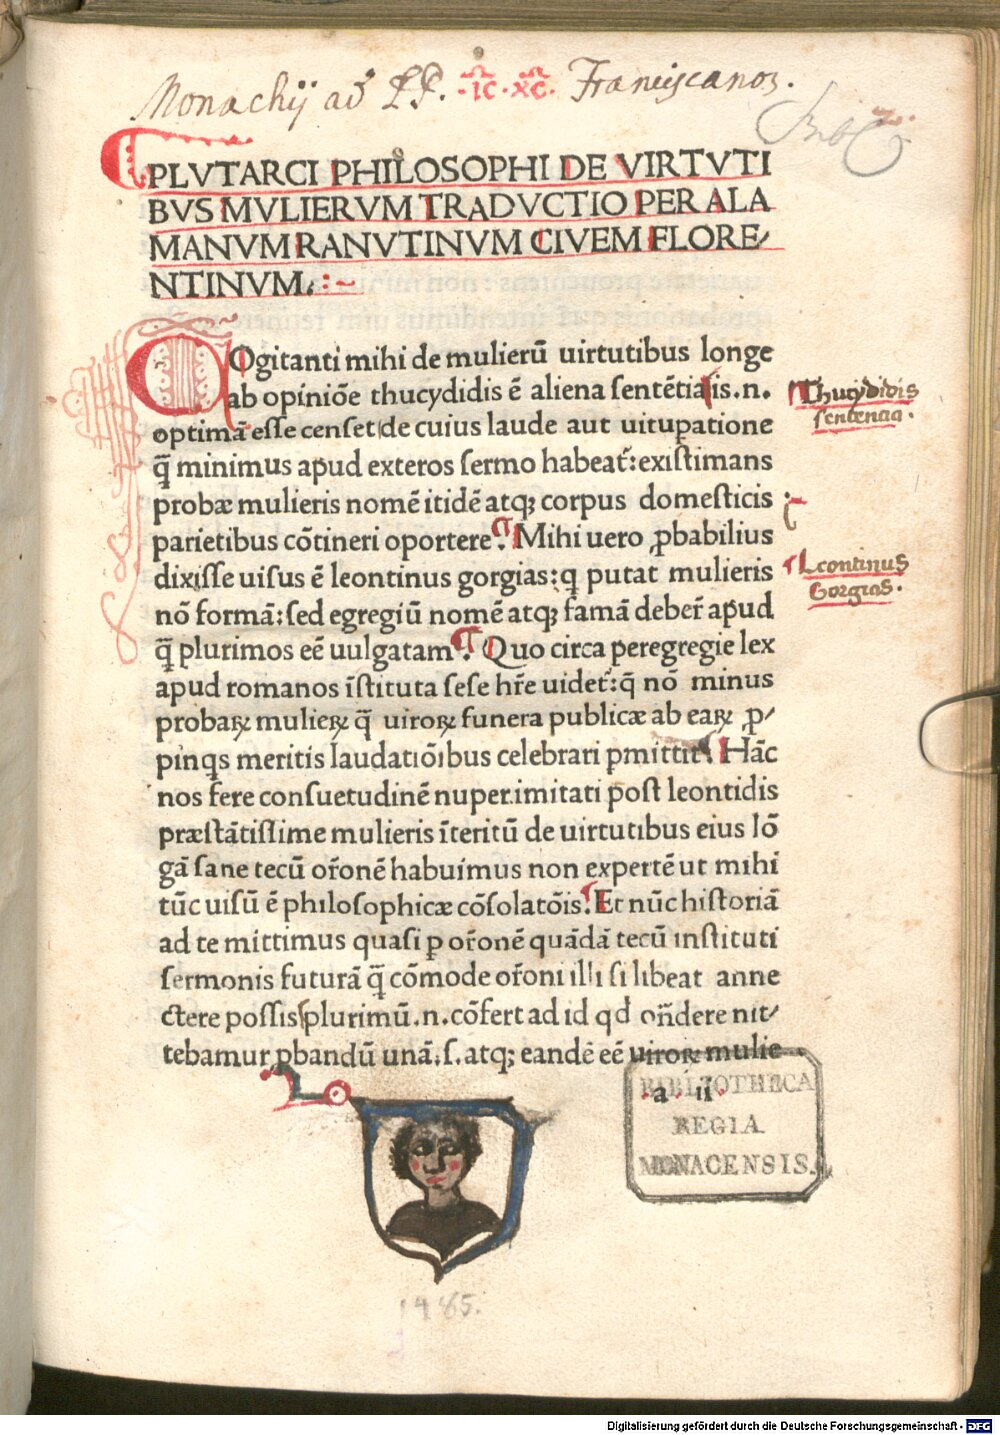 Monachij ad PP. ·IC·XC· Franciscanos.
PLVTARCI PHILOSOPHI DE VIRTVTI
BVS MVLIERVM TRADVCTIO PER ALA
MANVM RANVTINVM CIVEM FLORE/
NTINVM.:~
COgitanti mihi de mulierū uirtutibus longe
ab opiniōe thucydidis ē aliena sentētia is.n.
optimā esse censet de cuius laude aut uituꝑatione
q̄ minimus apud exteros sermo habeat᷑:existimans
probæ mulieris nomē itidē atqꝫ corpus domesticis
parietibus cōtineri oportere. Mihi uero ꝓbabilius
dixisse uisus ē leontinus gorgias:q putat mulieris
nō formā:sed egregiū nomē atqꝫ famā deber᷑ apud
q̄ plurimos eē uulgatam. Quo circa peregregie lex
apud romanos īstituta sese hr̄e uidet᷑:q̄ nō minus
probaꝝ mulieꝝ q̄ uiroꝝ funera publicæ ab eaꝝ ꝓ/
pinqs meritis laudatiōibus celebrari ꝑmittit. Hāc
nos fere consuetudinē nuper.imitati post leontidis
præstātissime mulieris īteritū de uirtutibus eius lō
gā sane tecū or̄onē habuimus non expertē ut mihi
tūc uisū ē philosophicæ cōsolatōis. Et nūc historiā
ad te mittimus quasi ꝑ or̄onē quādā tecū instituti
sermonis futurā q̄ cōmode or̄oni illi si libeat anne
ctere possis plurimū.n.cōfert ad id qd on̄dere nit/
tebamur ꝓbandū unā.s.atqꝫ eandē eē uiroꝝ mulie
a ii
Thucydidis
sentencia.
Leontinus
Gorgias.
BIBLIOTHECA
REGIA
MONACENSIS.
1485.
Digitalisierung gefördert durch die Deutsche Forschungsgemeinschaft - DFG